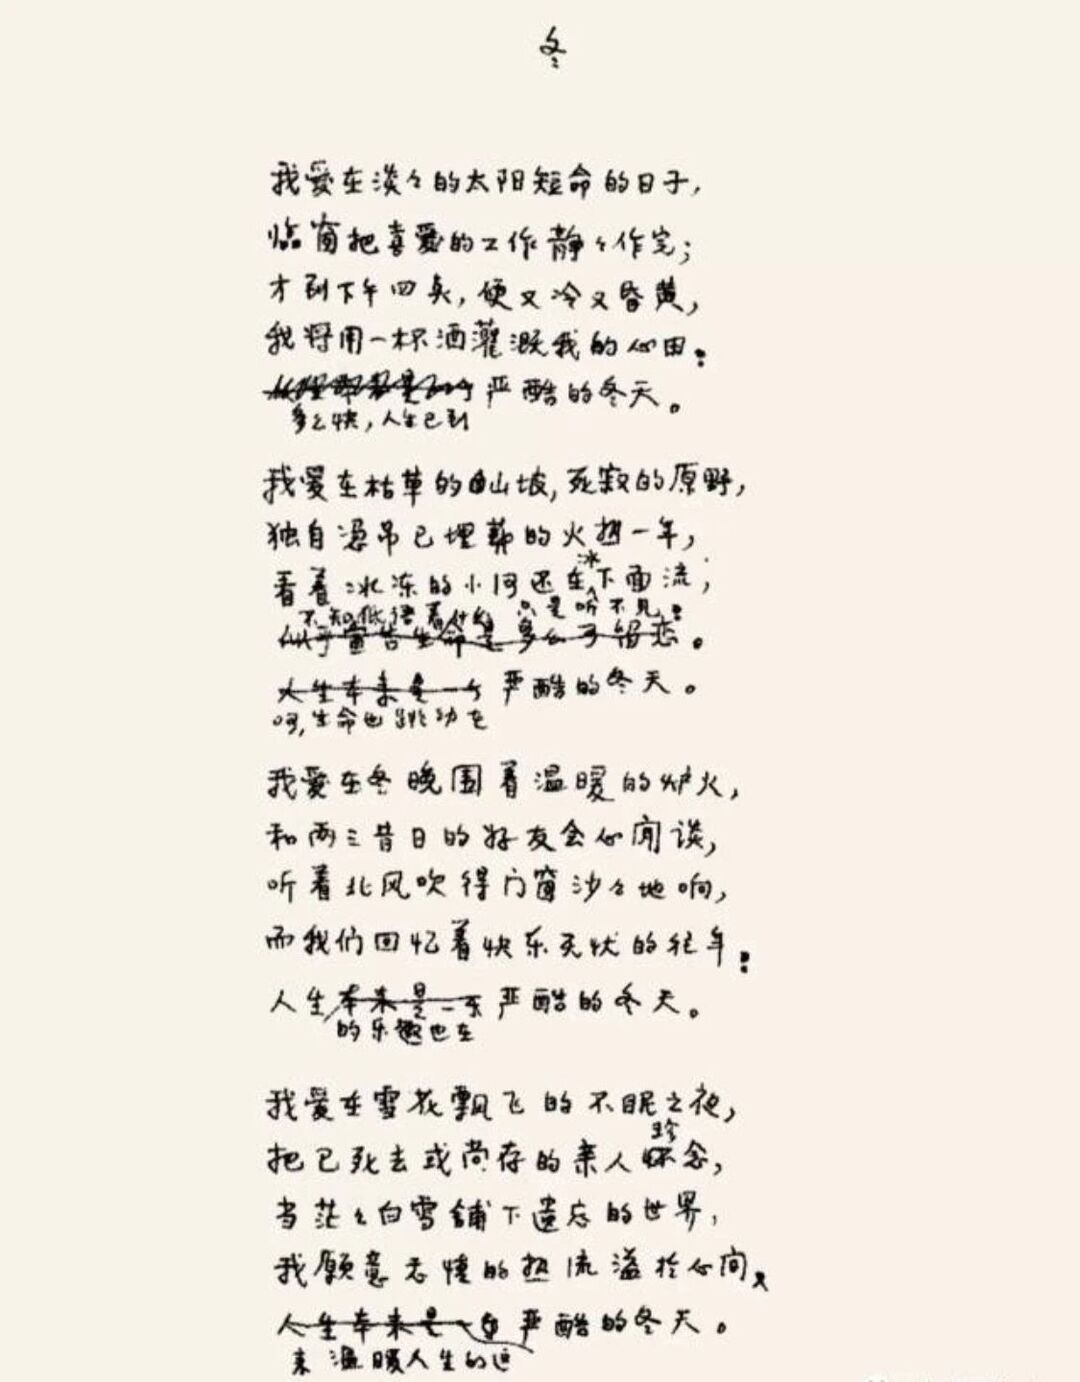 冬
我爱在淡々的太阳短命的日子，
临窗把喜爱的工作静々作完；
才到下午四点，便又冷又昏黄，
我将用一杯酒灌溉我的心田：
人生本来是一个 严酷的冬天。
多么快，人生已到
我爱在枯草的山坡，死寂的原野，
独自凭吊已埋葬的火热一年，
看着冰冻的小河还在下面流，
冰
不知低语着什么 只是听不见：
似乎宣告生命是多么可留恋。
人生本来是一个 严酷的冬天。
呵，生命也跳动在
我爱在冬晚围着温暖的炉火，
和两三昔日的好友会心闲谈，
听着北风吹得门窗沙々地响，
而我们回忆着快乐无忧的往年：
人生本来是一个 严酷的冬天。
的乐趣也在
我爱在雪花飘飞的不眠之夜，
珍
把已死去或尚存的亲人怀念，
当茫々白雪铺下遗忘的世界，
我愿意感情的热流溢于心间，
人生本来是一 严酷的冬天。
来温暖人生的这